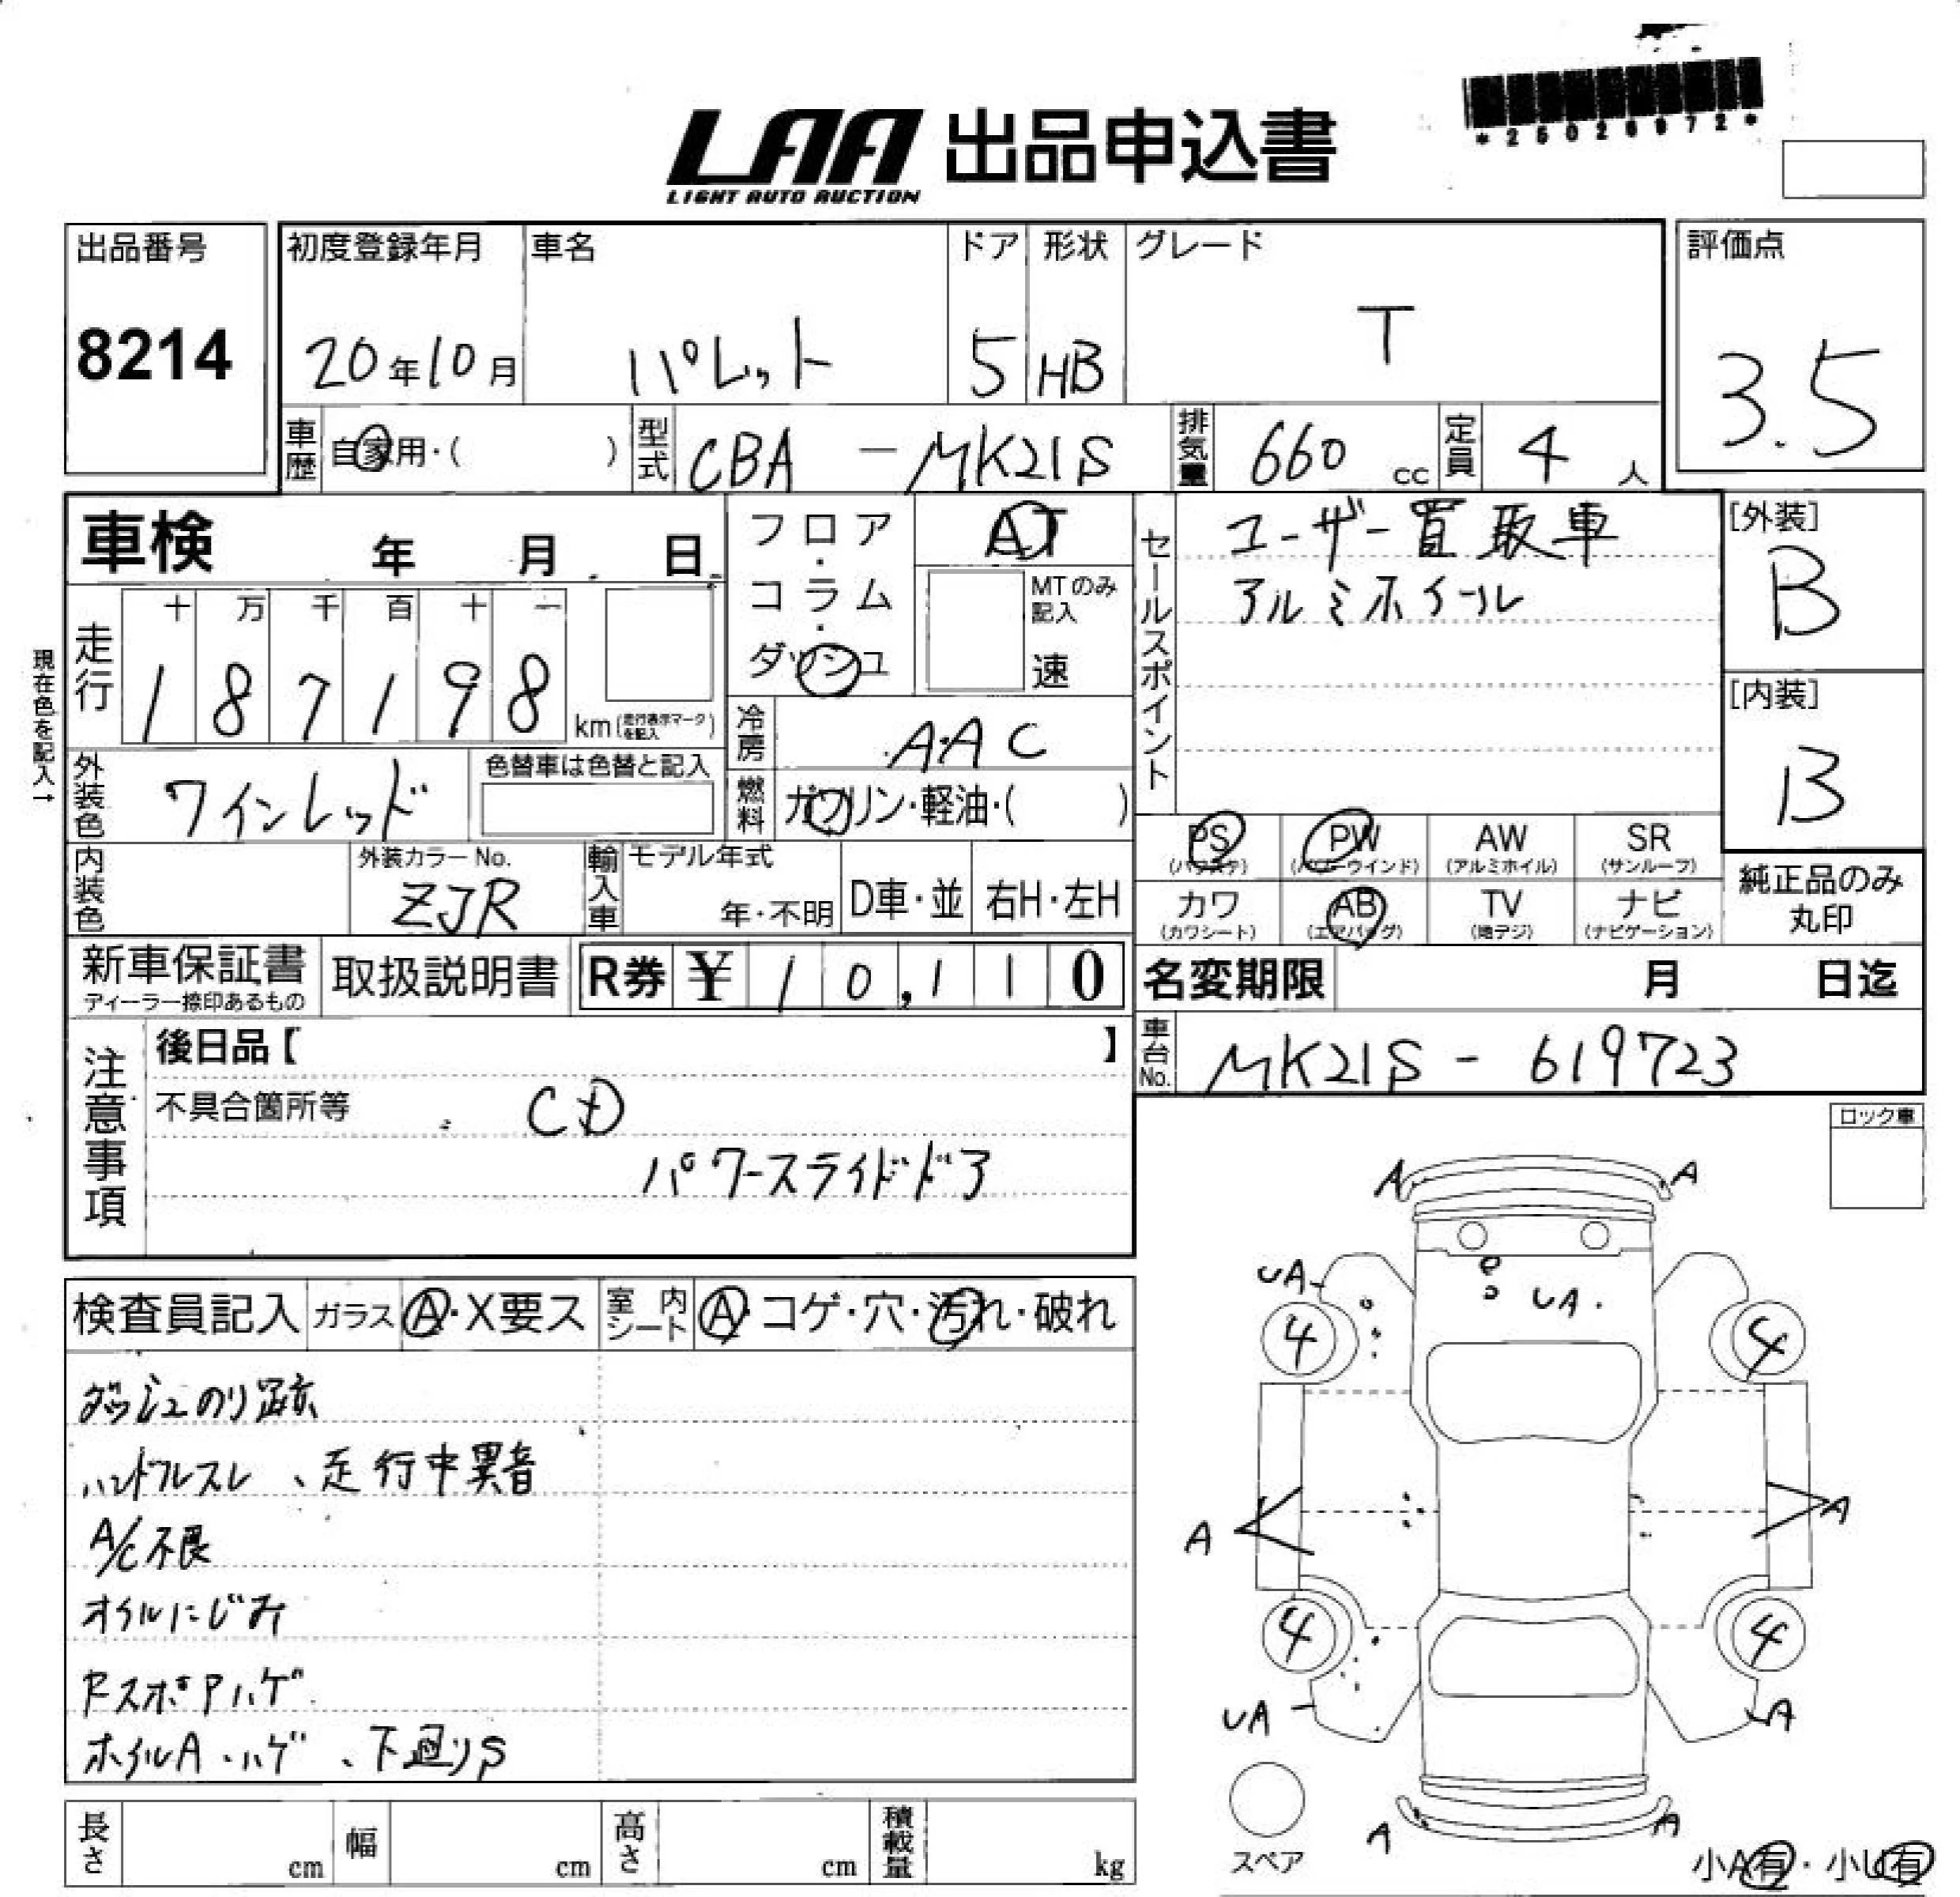 LAA 出品申込書
LIGHT AUTO AUCTION
出品番号
8214
初度登録年月
20年10月
車名
パレット
ドア
5
形状
HB
グレード
T
評価点
3.5
車歴 自家用・( )
型式 CBA - MK21S
排気量 660 cc
定員 4 人
車検 年 月 日
走行
十 万 千 百 十 一
1 8 7 1 9 8
km(走行表示マークを記入)
現在色を記入→
フロア・コラム・ダッシュ
AT
MTのみ記入
速
冷房 AAC
燃料 ガソリン・軽油・( )
外装色 ワインレッド
色替車は色替と記入
内装色
外装カラーNo.
ZJR
輸入車
モデル年式
年・不明
D車・並
右H・左H
セールスポイント
ユーザー買取車
アルミホイール
[外装]
B
[内装]
B
PS
(パワステ)
PW
(パワーウインド)
AW
(アルミホイル)
SR
(サンルーフ)
カワ
(カワシート)
AB
(エアバッグ)
TV
(地デジ)
ナビ
(ナビゲーション)
純正品のみ
丸印
新車保証書
ディーラー捺印あるもの
取扱説明書
R券 ¥ 10,110
名変期限 月 日迄
車台No. MK21S - 619723
注意事項
後日品【 】
不具合箇所等
CD
パワースライドドア
ロック車
検査員記入
ガラス A・X要ス
室内シート A・コゲ・穴・汚れ・破れ
ダッシュのり跡
ハンドルスレ、走行中異音
A/C不良
オイルにじみ
FスポPハゲ
ホイルA・ハゲ、下廻りS
A
A
UA
UA
4
4
A
A
4
4
UA
A
A
A
スペア
小A有・小U有
長さ cm
幅 cm
高さ cm
積載量 kg